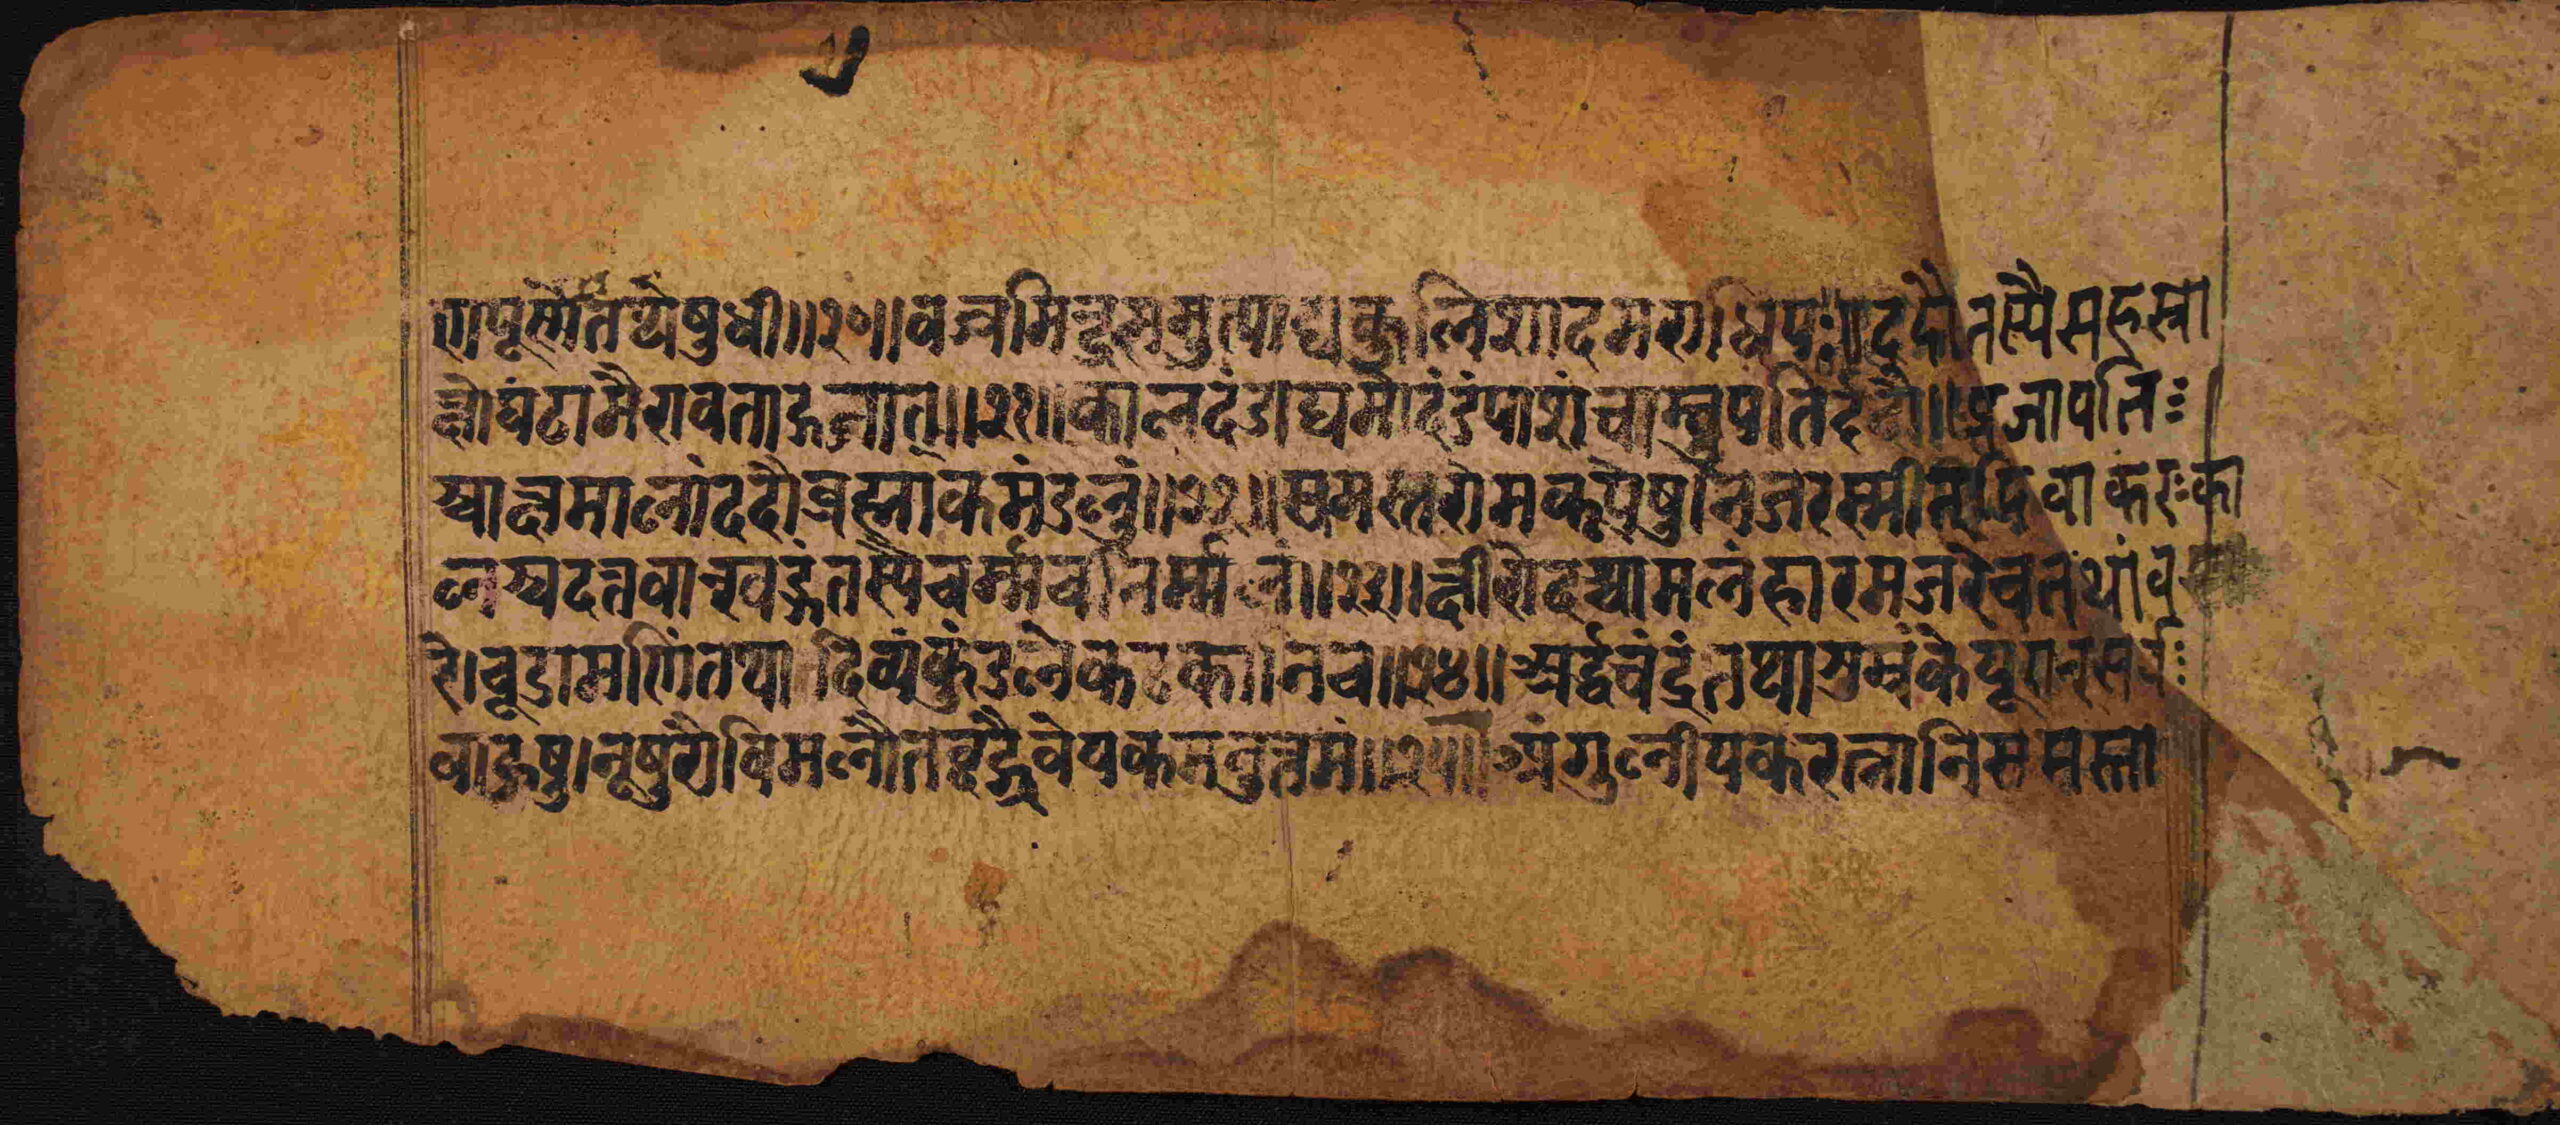 णपूर्स्मेतथेषुधी॥२०॥वज्रमिन्द्रसमुत्पाद्यकुलिशादमराधिपः॥ददौतस्यैसहस्रा
क्षोघंटामैरावताद्गजात्॥२१॥कालदंडाद्यमोदंडंपाशंचाम्बुपतिर्ददौ॥प्रजापतिः
श्चाक्षमालांददौब्रह्माकमंडलुं॥२२॥समस्तरोमकूपेषुनिजरस्मीन्दिवाकरःका
लश्चदत्तवान्खड्गंतस्यैचर्म्मचनिर्म्मलं॥२३॥क्षीरोदश्चामलंहारमजरेचतथांव
रे।चूडामणिंतथादिव्यंकुंडलेकटकानिच॥२४॥अर्द्धचंद्रंतथाशुभ्रंकेयूरान्सर्वः
बाहुषु।नूपुरौविमलौतद्वद्ग्रैवेयकमनुत्तमं॥२५॥अंगुलीयकरत्नानिसमस्ता